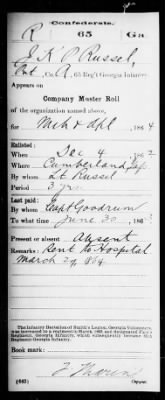 Confederate.
R 65 Ga
J. K. P. Russel,
Pvt, Co. A, 65 Reg't Georgia Infantry.
Appears on
Company Muster Roll
of the organization named above,
for Mch & Apl, 1864
Enlisted:
When Dec 4, 1862
Where Cumberland Gap
By whom Lt Russel
Period 3 yrs
Last paid:
By whom Capt Goodrum
To what time June 30, 1863
Present or absent Absent
Remarks: Sent to Hospital
March 29, 1864
The Infantry Battalion of Smith's Legion, Georgia Volunteers,
was increased to a regiment in March, 1863 and designated 65th
Regiment Georgia Infantry, which subsequently became 65th
Regiment Georgia Infantry.
Book mark:
(642) Copyist.